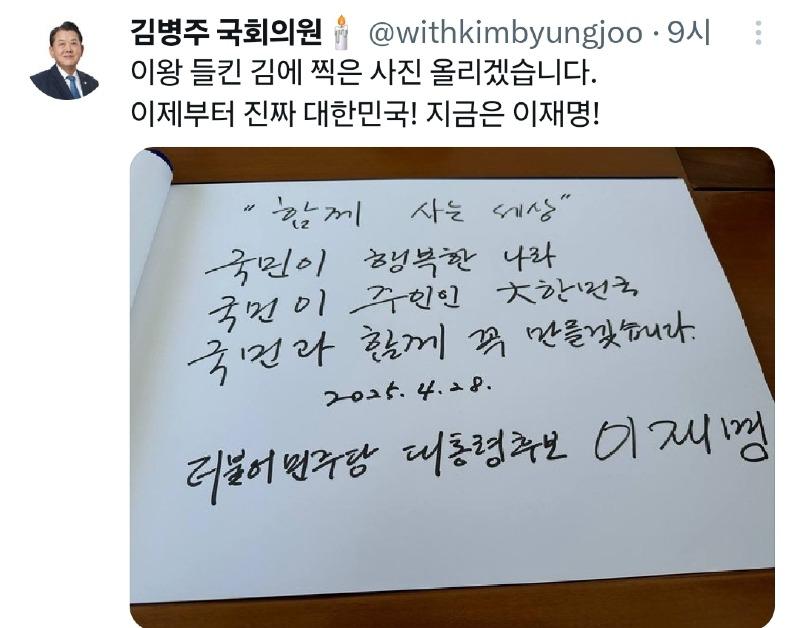 김병주 국회의원🕯️ @withkimbyungjoo · 9시
이왕 들킨 김에 찍은 사진 올리겠습니다.
이제부터 진짜 대한민국! 지금은 이재명!
"함께 사는 세상"
국민이 행복한 나라
국민이 주인인 大한민국
국민과 함께 꼭 만들겠습니다.
2025. 4. 28.
더불어민주당 대통령후보 이재명